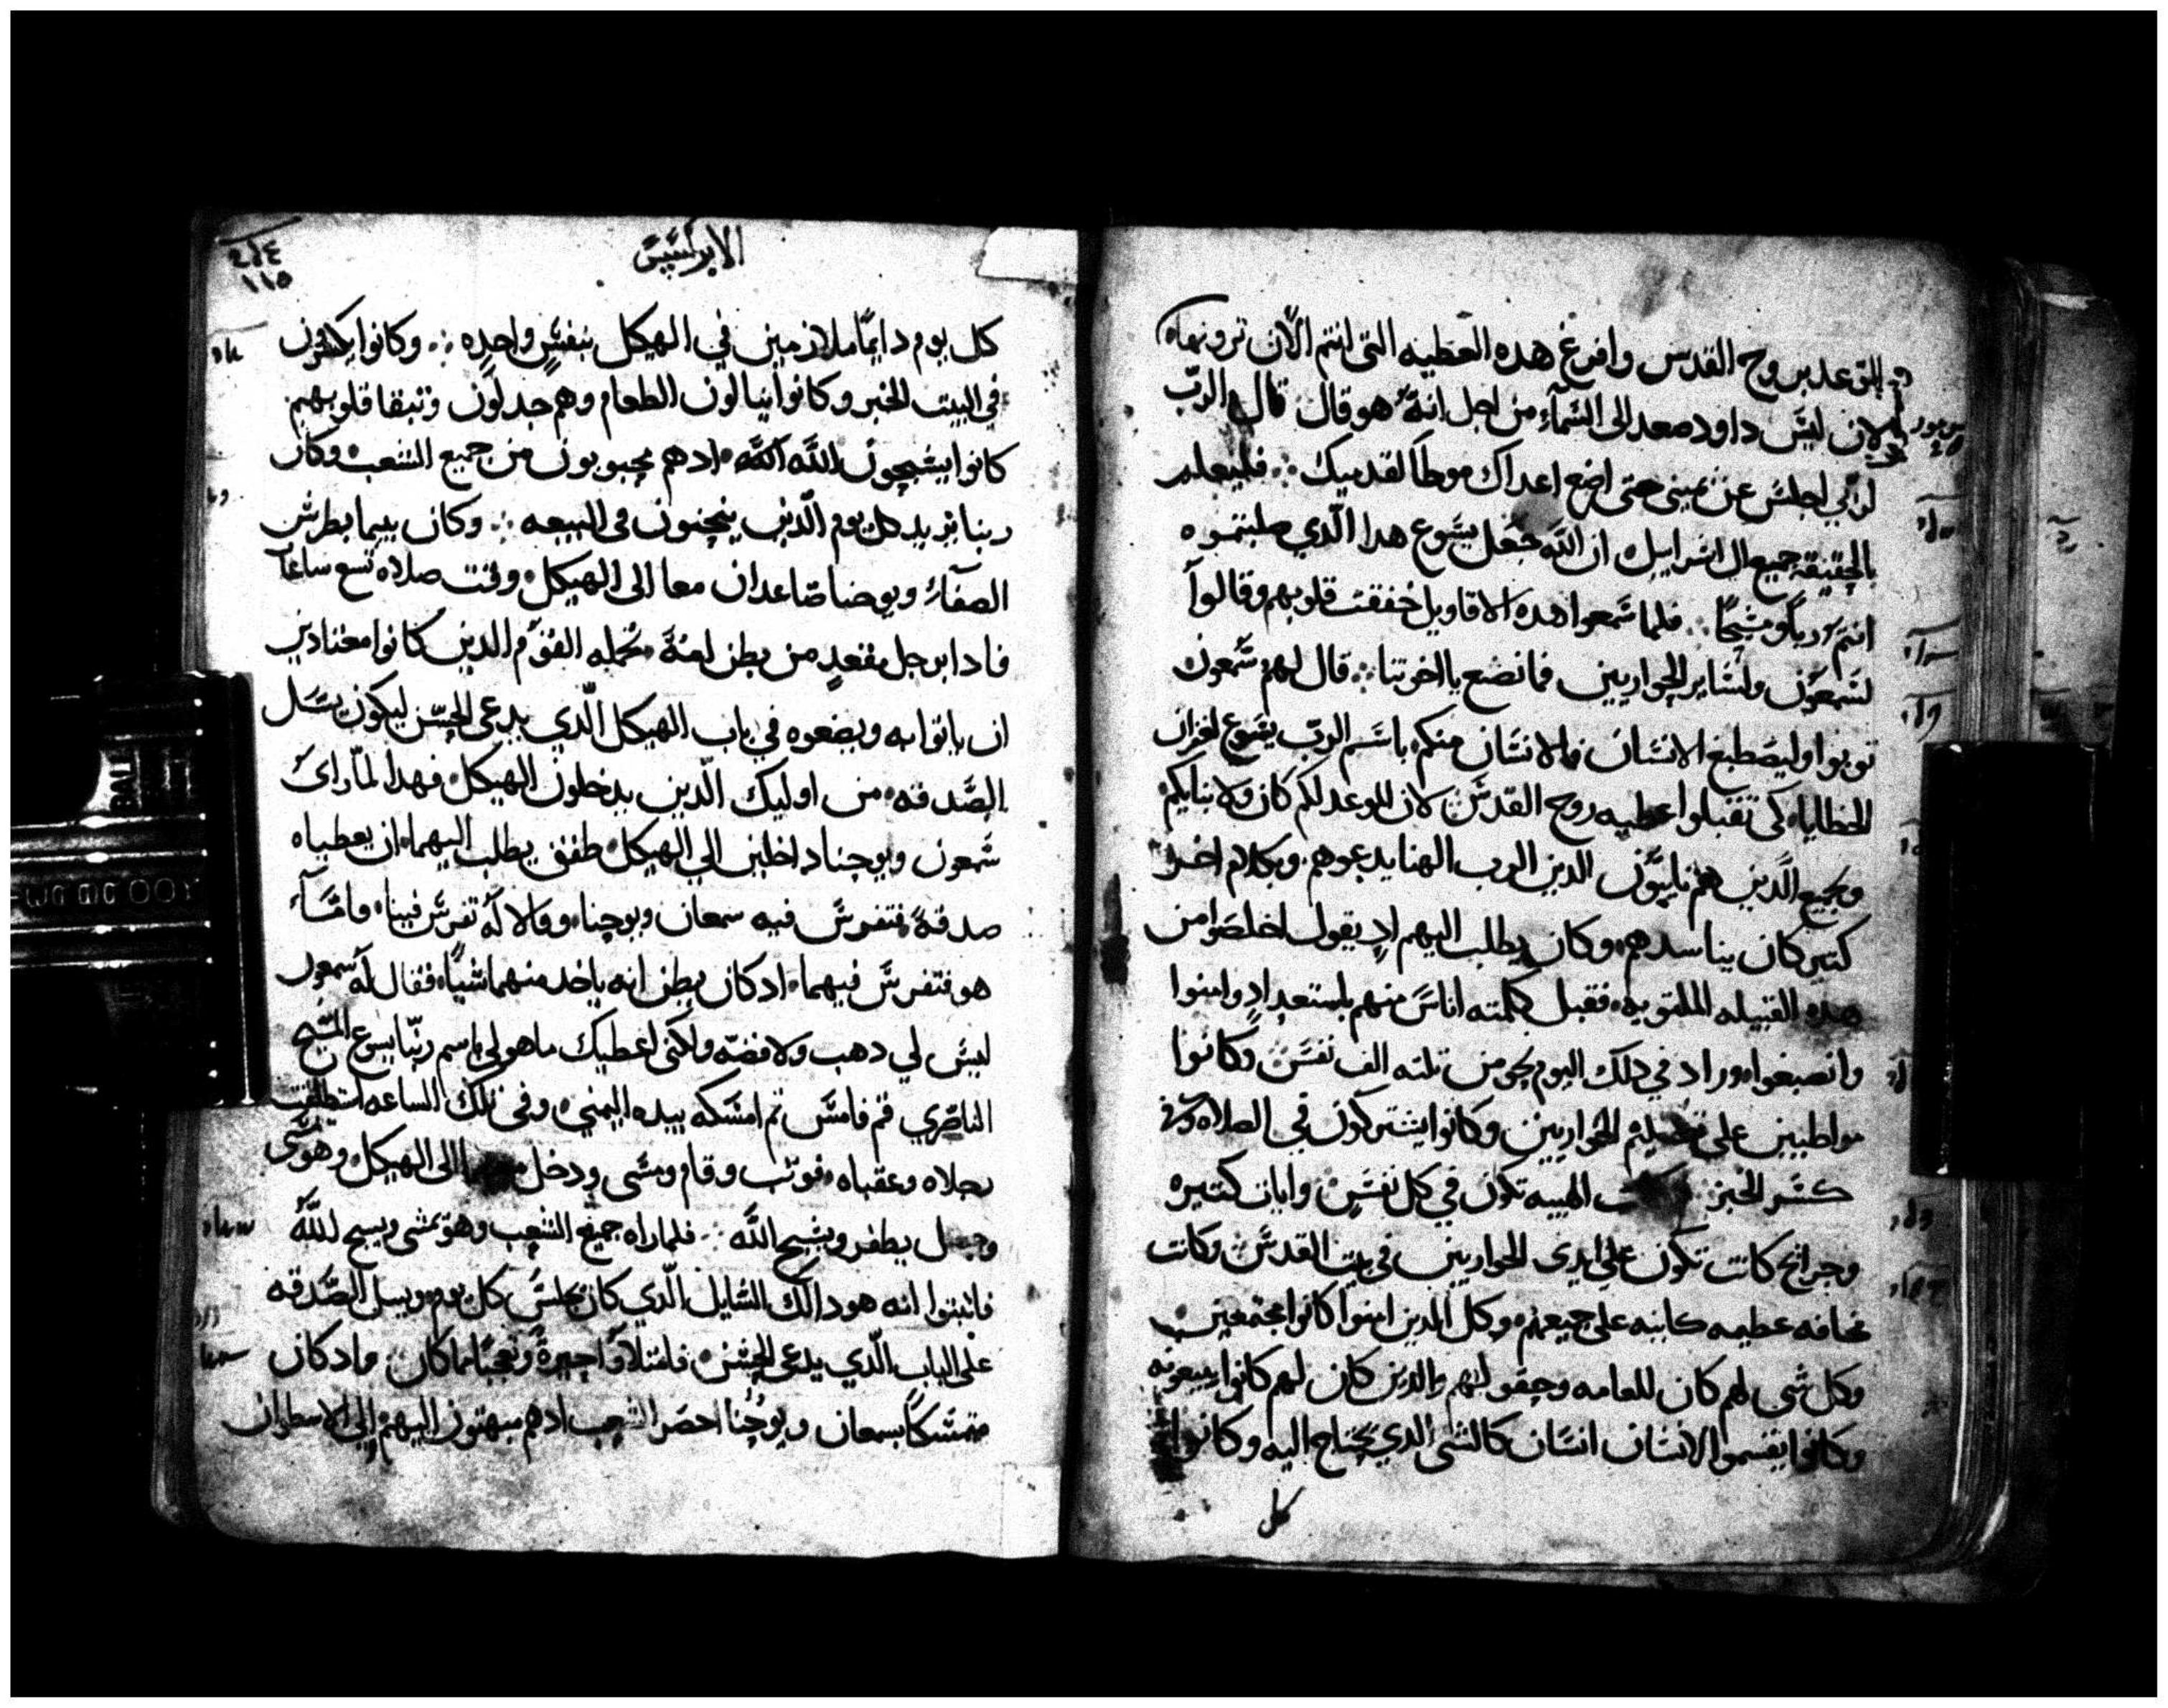 التوعد بروح القدس وافرغ هده العطيه التى انتم الان ترونها
لان ليس داود صعد الى السماء من اجل انه هو قال قال الرب
لربي اجلس عن يمينى حتى اضع اعداك موطا لقدميك فليعلم
بالحقيقة جميع ال اسراييل ان الله جعل يسوع هدا الدي صلبتموه
انتم ربا ومسيحا فلما سمعوا هده الاقاويل خفقت قلوبهم وقالوا
لسمعون ولساير الحواريين فما نصنع يا اخوتنا قال لهم سمعون
توبوا وليصطبغ الانسان فالانسان منكم باسم الرب يسوع لغفران
الخطايا كى تقبلوا عطيه روح القدس لان الوعد لكم كان ولابنايكم
وبجميع الدين هم نايون الدين الرب الهنا يدعوهم وبكلام اخر
كتير كان يناسدهم وكان يطلب اليهم اد يقول اخلصوا من
هده القبيله الملتويه فقبل كلمته اناس منهم باستعداد وامنوا
وانصبغوا وزاد في دلك اليوم نحو من تلته الف نفس وكانوا
مواظبين على تعليم الحواريين وكانوا يشتركون في الصلاه وفى
كسر الخبز الهيبه تكون في كل نفس وايات كتيره
وجرايح كانت تكون على ايدى الحواريين في بيت القدس وكانت
مخافه عظيمه كاينه على جميعهم وكل الدين امنوا كانوا مجتمعين
وكل شى لهم كان للعامه وحقولهم والدين كان لهم كانوا يبيعونه
وكانوا يقسموا الانسان انسان كالشى الدي يحتاج اليه وكانوا
كل
الابركسيس
١١٥
كل يوم دايما ملازمين في الهيكل بنفس واحده وكانوا يكسرون
في البيت الخبز وكانوا ينالون الطعام وهم جدلون وتبقا قلوبهم
كانوا يسبحون الله الله ادهم محبوبون من جميع الشعب وكان
ربنا يزيد كل يوم الدين ينجنون فى البيعه وكان بيما بطرس
الصفا ويوحنا صاعدان معا الى الهيكل وقت صلاه تسع ساعات
فادا برجل مقعد من بطن امه تحمله القوم الدين كانوا معتادين
ان ياتوا به ويضعوه في باب الهيكل الدي يدعى الحسن ليكون يسل
الصدقه من اوليك الدين يدخلون الهيكل فهدا لما راى
سمعون ويوحنا داخلين الي الهيكل طفق يطلب اليهما ان يعطياه
صدقة فتفرس فيه سمعان ويوحنا وقالا له تفرس فينا فامآ
هو فتفرس فيهما ادكان يظن انه ياخد منهما شيا فقال له سمعون
ليس لي دهب ولا فضه ولكنى اعطيك ما هو لي باسم ربنا يسوع المسيح
الناصري قم فامش تم امسكه بيده اليمني وفى تلك الساعه استطلقت
رجلاه وعقباه فوتب وقام ومشى ودخل معهما الى الهيكل وهو يمشى
وجعل يطفر ويسبح الله فلما راه جميع الشعب وهو يمشى ويسبح لله
فاتبتوا انه هو داك السايل الدي كان يجلس كل يوم ويسل الصدقه
على الباب الدي يدعى الحسن فامتلاوا حيرة وتعجبا مما كان واد كان
متمسكا بسمعان ويوحنا احضر الشعب ادهم مبهتون اليهم إلى الاسطوان